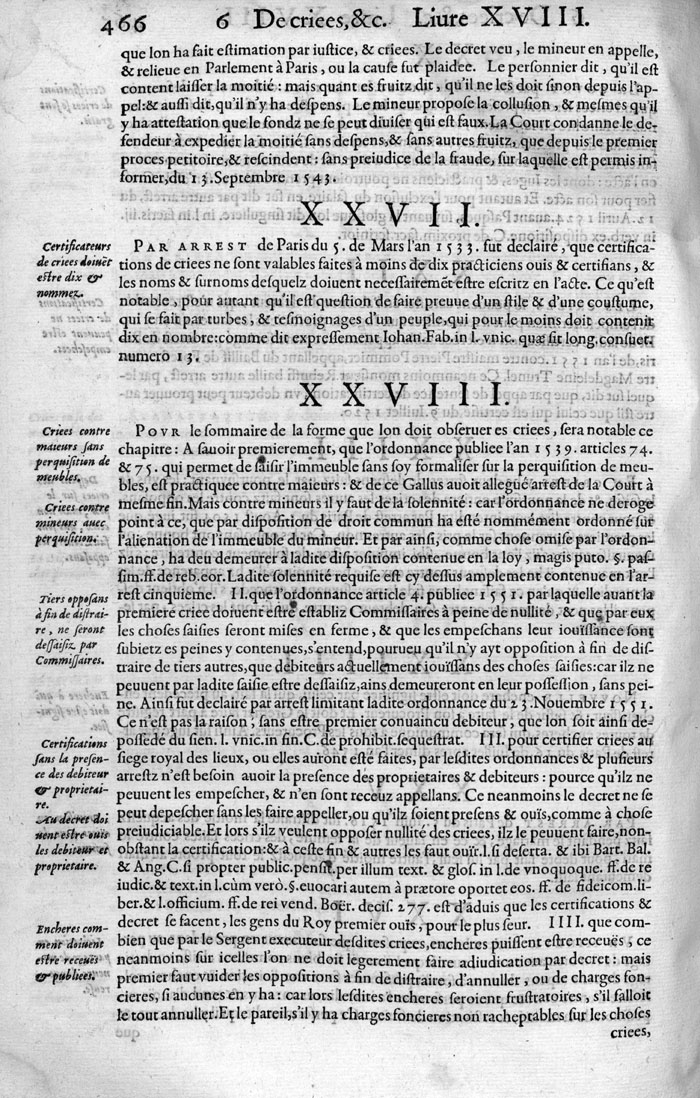 466 6 De criees, &c. Liure XVIII.
que lon ha fait estimation par iustice, & criees. Le decret veu, le mineur en appelle,
& relieue en Parlement à Paris, ou la cause fut plaidee. Le personnier dit, qu'il est
content laisser la moitié: mais quant es fruitz dit, qu'il ne les doit sinon depuis l'ap-
pel: & aussi dit, qu'il n'y ha despens. Le mineur propose la collusion, & mesmes qu'il
y ha attestation que le fondz ne se peut diuiser qui est faux. La Court condanne le de-
fendeur à expedier la moitié sans despens, & sans autres fruitz, que depuis le premier
proces petitoire, & rescindent: sans preiudice de la fraude, sur laquelle est permis in-
former, du 13. Septembre 1543.
XXVII.
Certificateurs
de criees doiuēt
estre dix &
nommez.
PAR ARREST de Paris du 5. de Mars l'an 1533. fut declairé, que certifica-
tions de criees ne sont valables faites à moins de dix practiciens ouis & certifians, &
les noms & surnoms desquelz doiuent necessairemēt estre escritz en l'acte. Ce qu'est
notable, pour autant qu'il est question de faire preuue d'un stile & d'une coustume,
qui se fait par turbes, & tesmoignages d'un peuple, qui pour le moins doit contenir
dix en nombre: comme dit expressement Iohan. Fab. in l. vnic. quæ sit long. consuet.
numero 13.
XXVIII.
Criees contre
maieurs sans
perquisition de
meubles.
Criees contre
mineurs auec
perquisition.
Tiers opposans
à fin de distrai-
re, ne seront
dessaisiz par
Commissaires.
Certifications
sans la presen-
ce des debiteur
& proprietai-
re.
Au decret doi
uent estre ouis
les debiteur et
proprietaire.
Encheres com-
ment doiuent
estre receuës
& publiees.
POVR le sommaire de la forme que lon doit obseruer es criees, sera notable ce
chapitre: A sauoir premierement, que l'ordonnance publiee l'an 1539. articles 74.
& 75. qui permet de saisir l'immeuble sans soy formaliser sur la perquisition de meu-
bles, est practiquee contre maieurs: & de ce Gallus auoit allegué arrest de la Court à
mesme fin. Mais contre mineurs il y faut de la solennité: car l'ordonnance ne deroge
point à ce, que par disposition de droit commun ha esté nommément ordonné sur
l'alienation de l'immeuble du mineur. Et par ainsi, comme chose omise par l'ordon-
nance, ha deu demeurer à ladite disposition contenue en la loy, magis puto. §. pas-
sim. ff. de reb. eor. Ladite solennité requise est cy dessus amplement contenue en l'ar-
rest cinquieme. II. que l'ordonnance article 4. publiee 1551. par laquelle auant la
premiere criee doiuent estre establiz Commissaires à peine de nullité, & que par eux
les choses saisies seront mises en ferme, & que les empeschans leur iouïssance sont
subietz es peines y contenues, s'entend, pourueu qu'il n'y ayt opposition à fin de dis-
traire de tiers autres, que debiteurs actuellement iouïssans des choses saisies: car ilz ne
peuuent par ladite saisie estre dessaisiz, ains demeureront en leur possession, sans pei-
ne. Ainsi fut declairé par arrest limitant ladite ordonnance du 23. Nouembre 1551.
Ce n'est pas la raison, sans estre premier conuaincu debiteur, que lon soit ainsi de-
possedé du sien. l. vnic. in fin. C. de prohibit. sequestrat. III. pour certifier criees au
siege royal des lieux, ou elles auront esté faites, par lesdites ordonnances & plusieurs
arrestz n'est besoin auoir la presence des proprietaires & debiteurs: pource qu'ilz ne
peuuent les empescher, & n'en sont receuz appellans. Ce neanmoins le decret ne se
peut depescher sans les faire appeller, ou qu'ilz soient presens & ouïs, comme à chose
preiudiciable. Et lors s'ilz veulent opposer nullité des criees, ilz le peuuent faire, non-
obstant la certification: & à ceste fin & autres les faut ouïr. l. si deserta. & ibi Bart. Bal.
& Ang. C. si propter public. pensit. per illum text. & glos. in l. de vnoquoque. ff. de re
iudic. & text. in l. cùm verò. §. euocari autem à prætore oportet eos. ff. de fideicom. li-
ber. & l. officium. ff. de rei vend. Boër. decis. 277. est d'aduis que les certifications &
decret se facent, les gens du Roy premier ouis, pour le plus seur. IIII. que com-
bien que par le Sergent executeur desdites criees, encheres puissent estre receuës, ce
neanmoins sur icelles l'on ne doit legerement faire adiudication par decret: mais
premier faut vuider les oppositions à fin de distraire, d'annuller, ou de charges fon-
cieres, si aucunes en y ha: car lors lesdites encheres seroient frustratoires, s'il falloit
le tout annuller. Et le pareil, s'il y ha charges foncieres non racheptables sur les choses
criees,